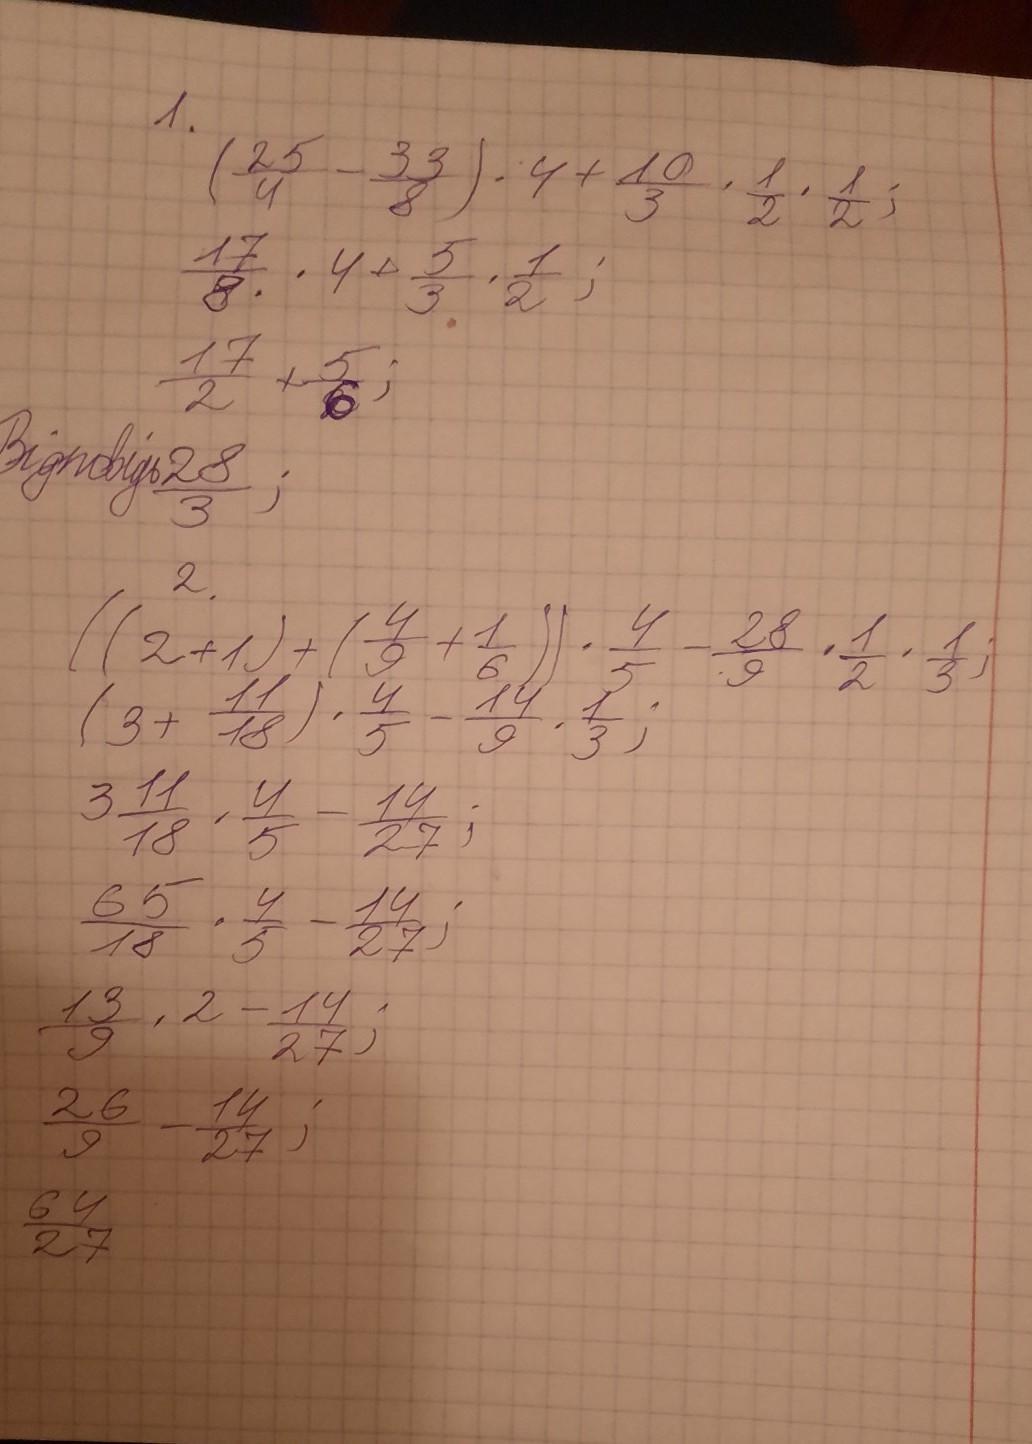 1.
(25/4 - 33/8) · 4 + 10/3 · 1/2 · 1/2;
17/8 · 4 + 5/3 · 1/2;
17/2 + 5/6;
Відповідь 28/3;
2.
((2+1)+(4/9+1/6)) · 4/5 - 28/9 · 1/2 · 1/3;
(3+ 11/18) · 4/5 - 14/9 · 1/3;
3 11/18 · 4/5 - 14/27;
65/18 · 4/5 - 14/27;
13/9 · 2 - 14/27;
26/9 - 14/27;
64/27